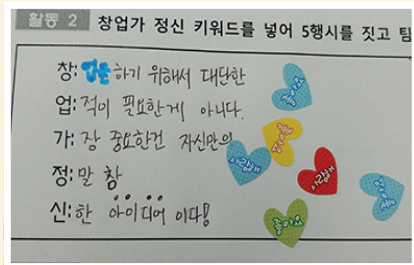 활동 2 창업가 정신 키워드를 넣어 5행시를 짓고 팀
창: 업을 하기 위해서 대단한
업: 적이 필요한게 아니다.
가: 장 중요한건 자신만의
정: 말 참
신: 한 아이디어 이다!
좋아요
사랑해
사랑해
좋아요